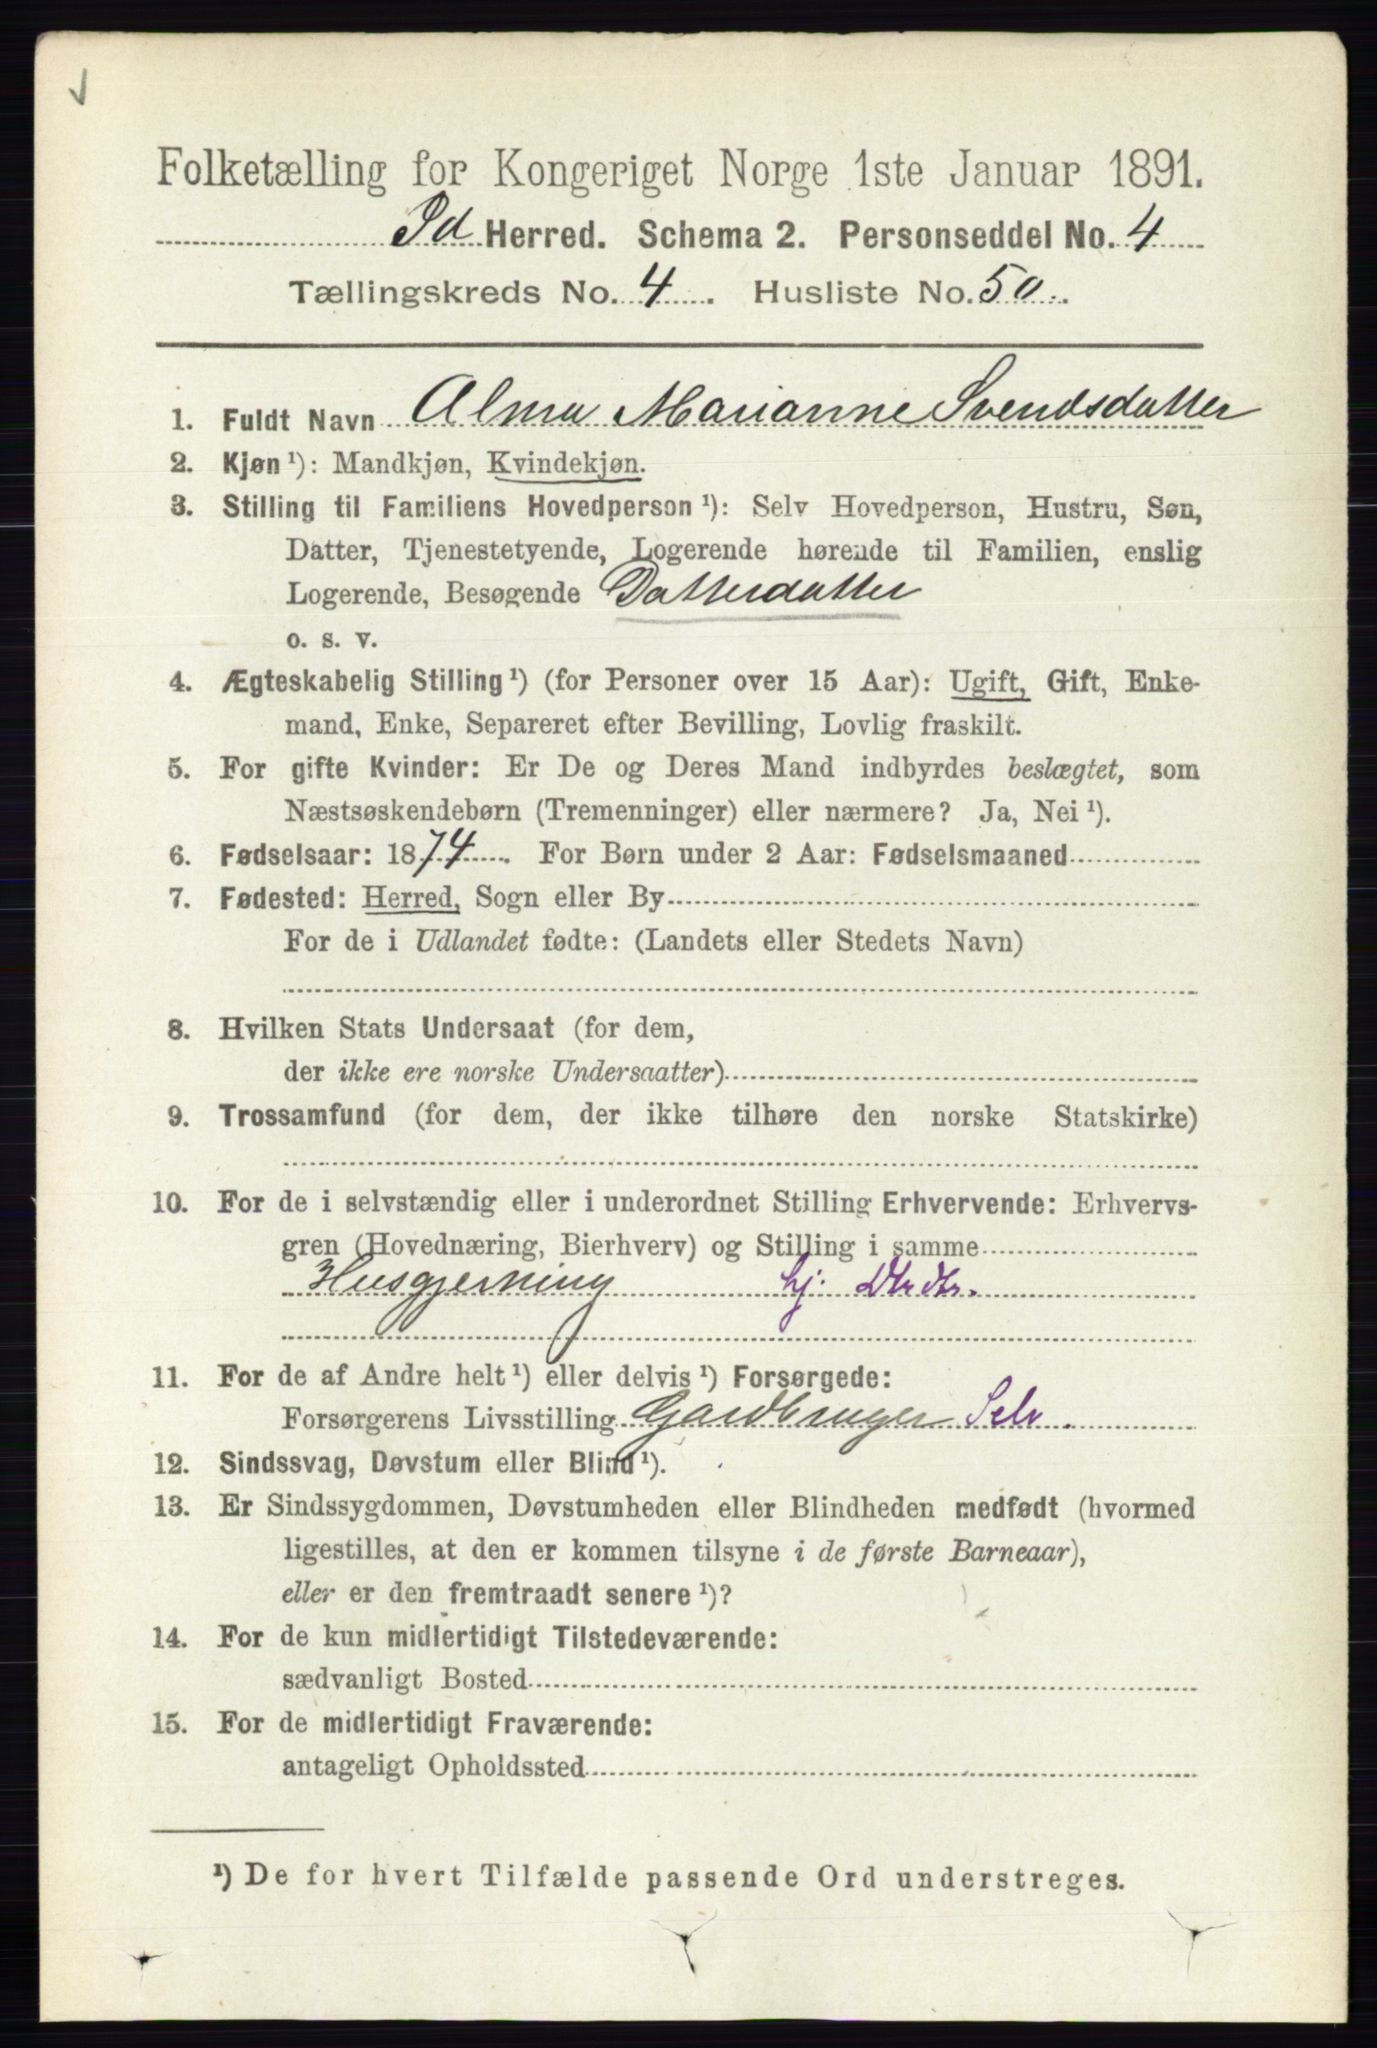 Folketælling for Kongeriget Norge 1ste Januar 1891.
Id Herred. Schema 2. Personseddel No. 4
Tællingskreds No. 4. Husliste No. 50.
1. Fuldt Navn Alma Marianne Svendsdatter
2. Kjøn ¹): Mandkjøn, Kvindekjøn.
3. Stilling til Familiens Hovedperson ¹): Selv Hovedperson, Hustru, Søn,
Datter, Tjenestetyende, Logerende hørende til Familien, enslig
Logerende, Besøgende Datterdatter
o. s. v.
4. Ægteskabelig Stilling ¹) (for Personer over 15 Aar): Ugift, Gift, Enke-
mand, Enke, Separeret efter Bevilling, Lovlig fraskilt.
5. For gifte Kvinder: Er De og Deres Mand indbyrdes beslægtet, som
Næstsøskendebørn (Tremenninger) eller nærmere? Ja, Nei ¹).
6. Fødselsaar: 1874. For Børn under 2 Aar: Fødselsmaaned
7. Fødested: Herred, Sogn eller By
For de i Udlandet fødte: (Landets eller Stedets Navn)
8. Hvilken Stats Undersaat (for dem,
der ikke ere norske Undersaatter)
9. Trossamfund (for dem, der ikke tilhøre den norske Statskirke)
10. For de i selvstændig eller i underordnet Stilling Erhvervende: Erhvervs-
gren (Hovednæring, Bierhverv) og Stilling i samme
Husgjerning hj. Dtr dtr.
11. For de af Andre helt ¹) eller delvis ¹) Forsørgede:
Forsørgerens Livsstilling Gardbruger Selv.
12. Sindssvag, Døvstum eller Blind ¹).
13. Er Sindssygdommen, Døvstumheden eller Blindheden medfødt (hvormed
ligestilles, at den er kommen tilsyne i de første Barneaar),
eller er den fremtraadt senere ¹)?
14. For de kun midlertidigt Tilstedeværende:
sædvanligt Bosted
15. For de midlertidigt Fraværende:
antageligt Opholdssted
¹) De for hvert Tilfælde passende Ord understreges.